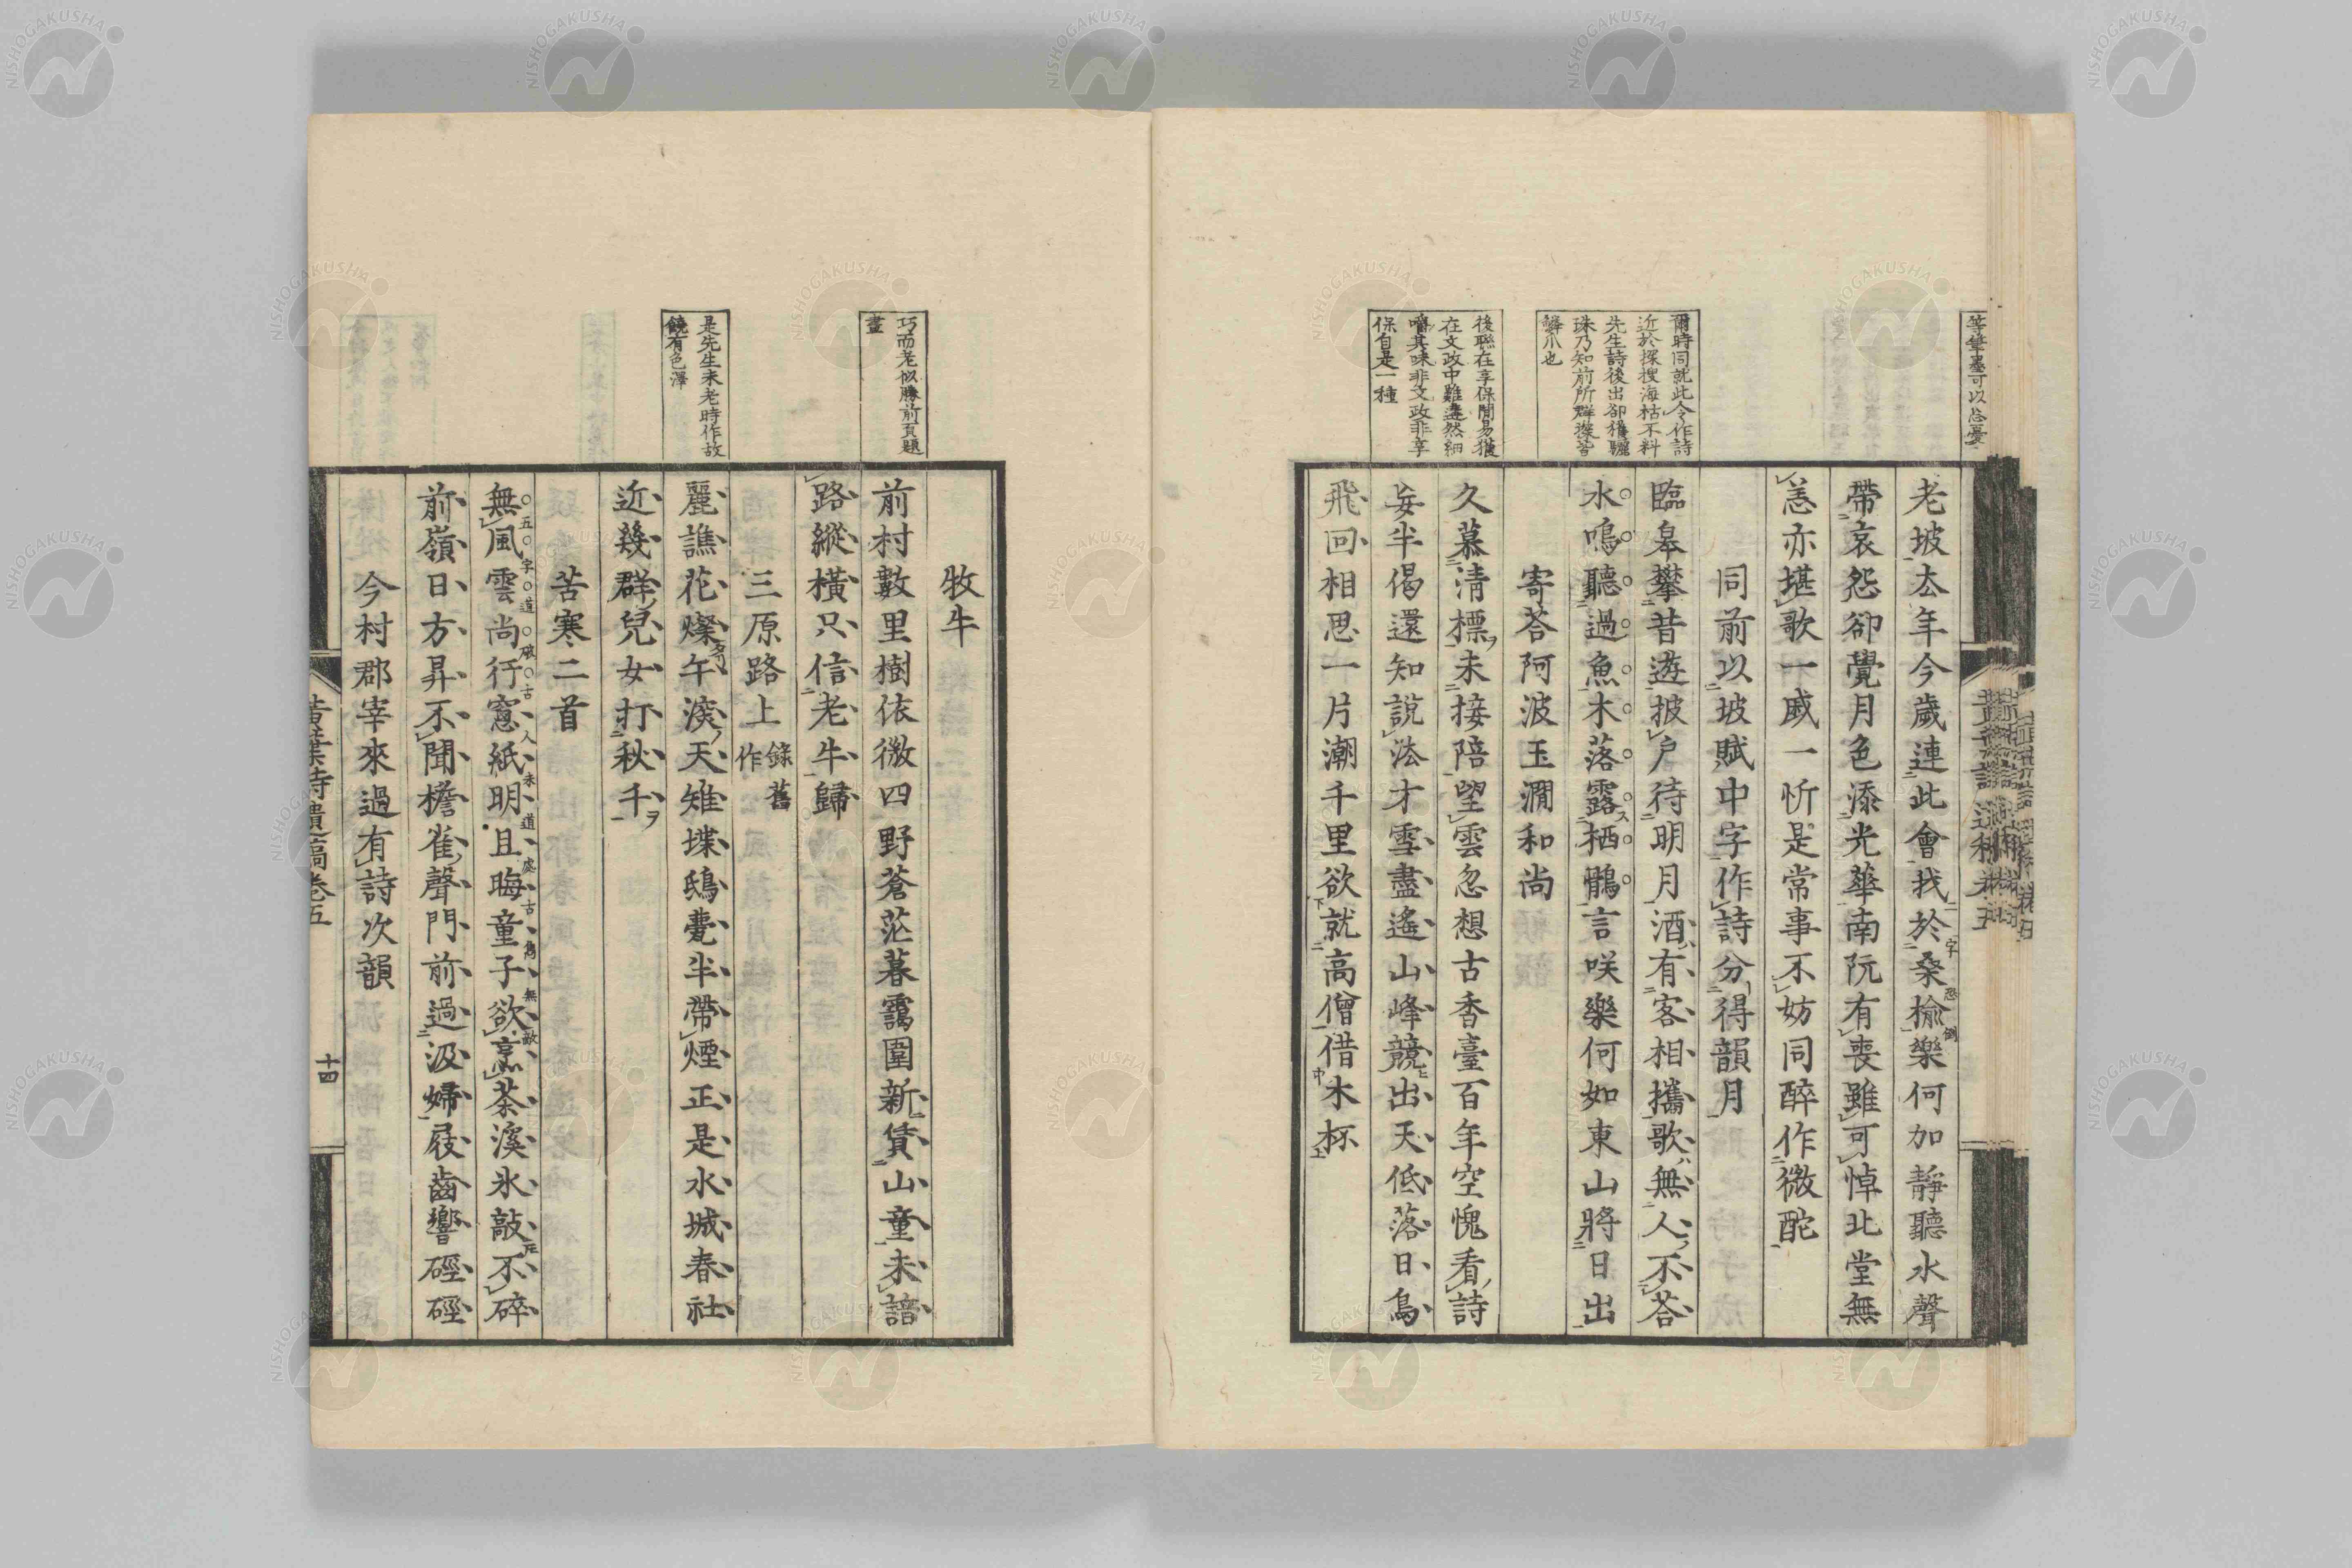 等筆墨可以忘憂
老坡去年今歲連此會我於桑榆樂何加靜聽水聲
帶哀怨卻覺月色添光華南阮有喪雖可悼北堂無
恙亦堪歌一慼一忻是常事不妨同醉作微酡
同前以坡賦中字作詩分得韻月
爾時同就此令作詩
近於探搜海枯不料
先生詩後出卻獲驪
珠乃知前所群攥皆
鱗爪也
臨皋攀昔遊披戶待明月酒有客相攜歌無人不荅
水鳴聽過魚木落露栖鶻言咲樂何如東山將日出
寄荅阿波玉澗和尚
後聯在享保間易獲
在文政中難遘然細
嚼其味非文政非享
保自是一種
久慕清標未接陪望雲忽想古香臺百年空愧看詩
妄半偈還知說法才雪盡遙山峰競出天低落日鳥
飛回相思一片潮千里欲就高僧借木杯
牧牛
巧而老似勝前頁題
畫
前村數里樹依微四野蒼茫暮靄圍新賃山童未諳
路縱橫只信老牛歸
三原路上 錄舊作
是先生未老時作故
饒有色澤
麗譙花燦午湥天雉堞鴟甍半帶煙正是水城春社
近幾群兒女打秋千
苦寒二首
無風雲尚行窻紙明且晦童子欲烹茶溪氷敲不碎
五字道破古人未道處古雋無敵
前嶺日方昇不聞檐雀聲門前過汲婦屐齒響硜硜
今村郡宰來過有詩次韻
黃葉詩遺稿卷五
十四
NISHOGAKUSHA